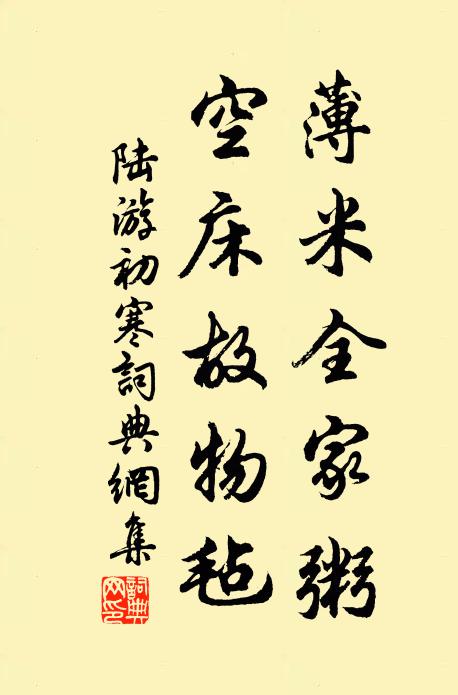 薄米全家粥
空床故物毡
陆游初寒詞典網集
詞典网印